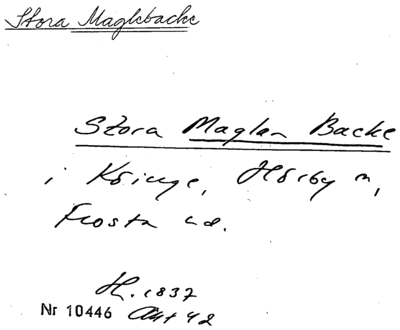 Stora Maglebacke
Stora Maglan Backe
i Köinge, Hörby sn,
Frosta hd.
H. 1837
Nr 10446 Akt 42